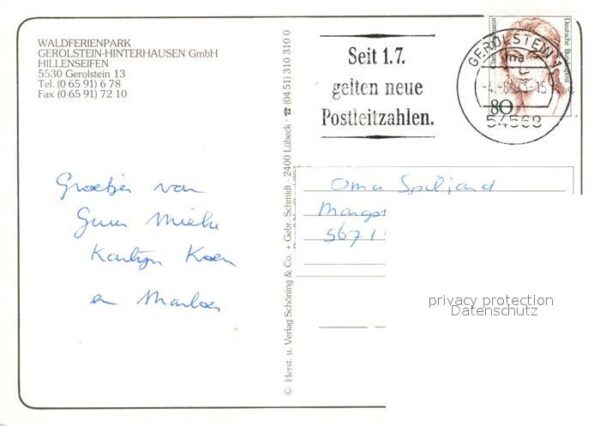 WALDFERIENPARK
GEROLSTEIN-HINTERHAUSEN GmbH
HILLENSEIFEN
5530 Gerolstein 13
Tel. (0 65 91) 6 78
Fax (0 65 91) 72 10
Seit 1.7.
gelten neue
Postleitzahlen.
GEROLSTEIN 1
ma
15
54568
80
Deutsche Bundespost
Groetjes van
Guus Mieke
Karlijn Koen
en Marloes
© Herst. u. Verlag Schöning & Co. + Gebr. Schmidt · 2400 Lübeck · ☎ (04 51) 310 310 0
Oma
5671
privacy protection
Datenschutz